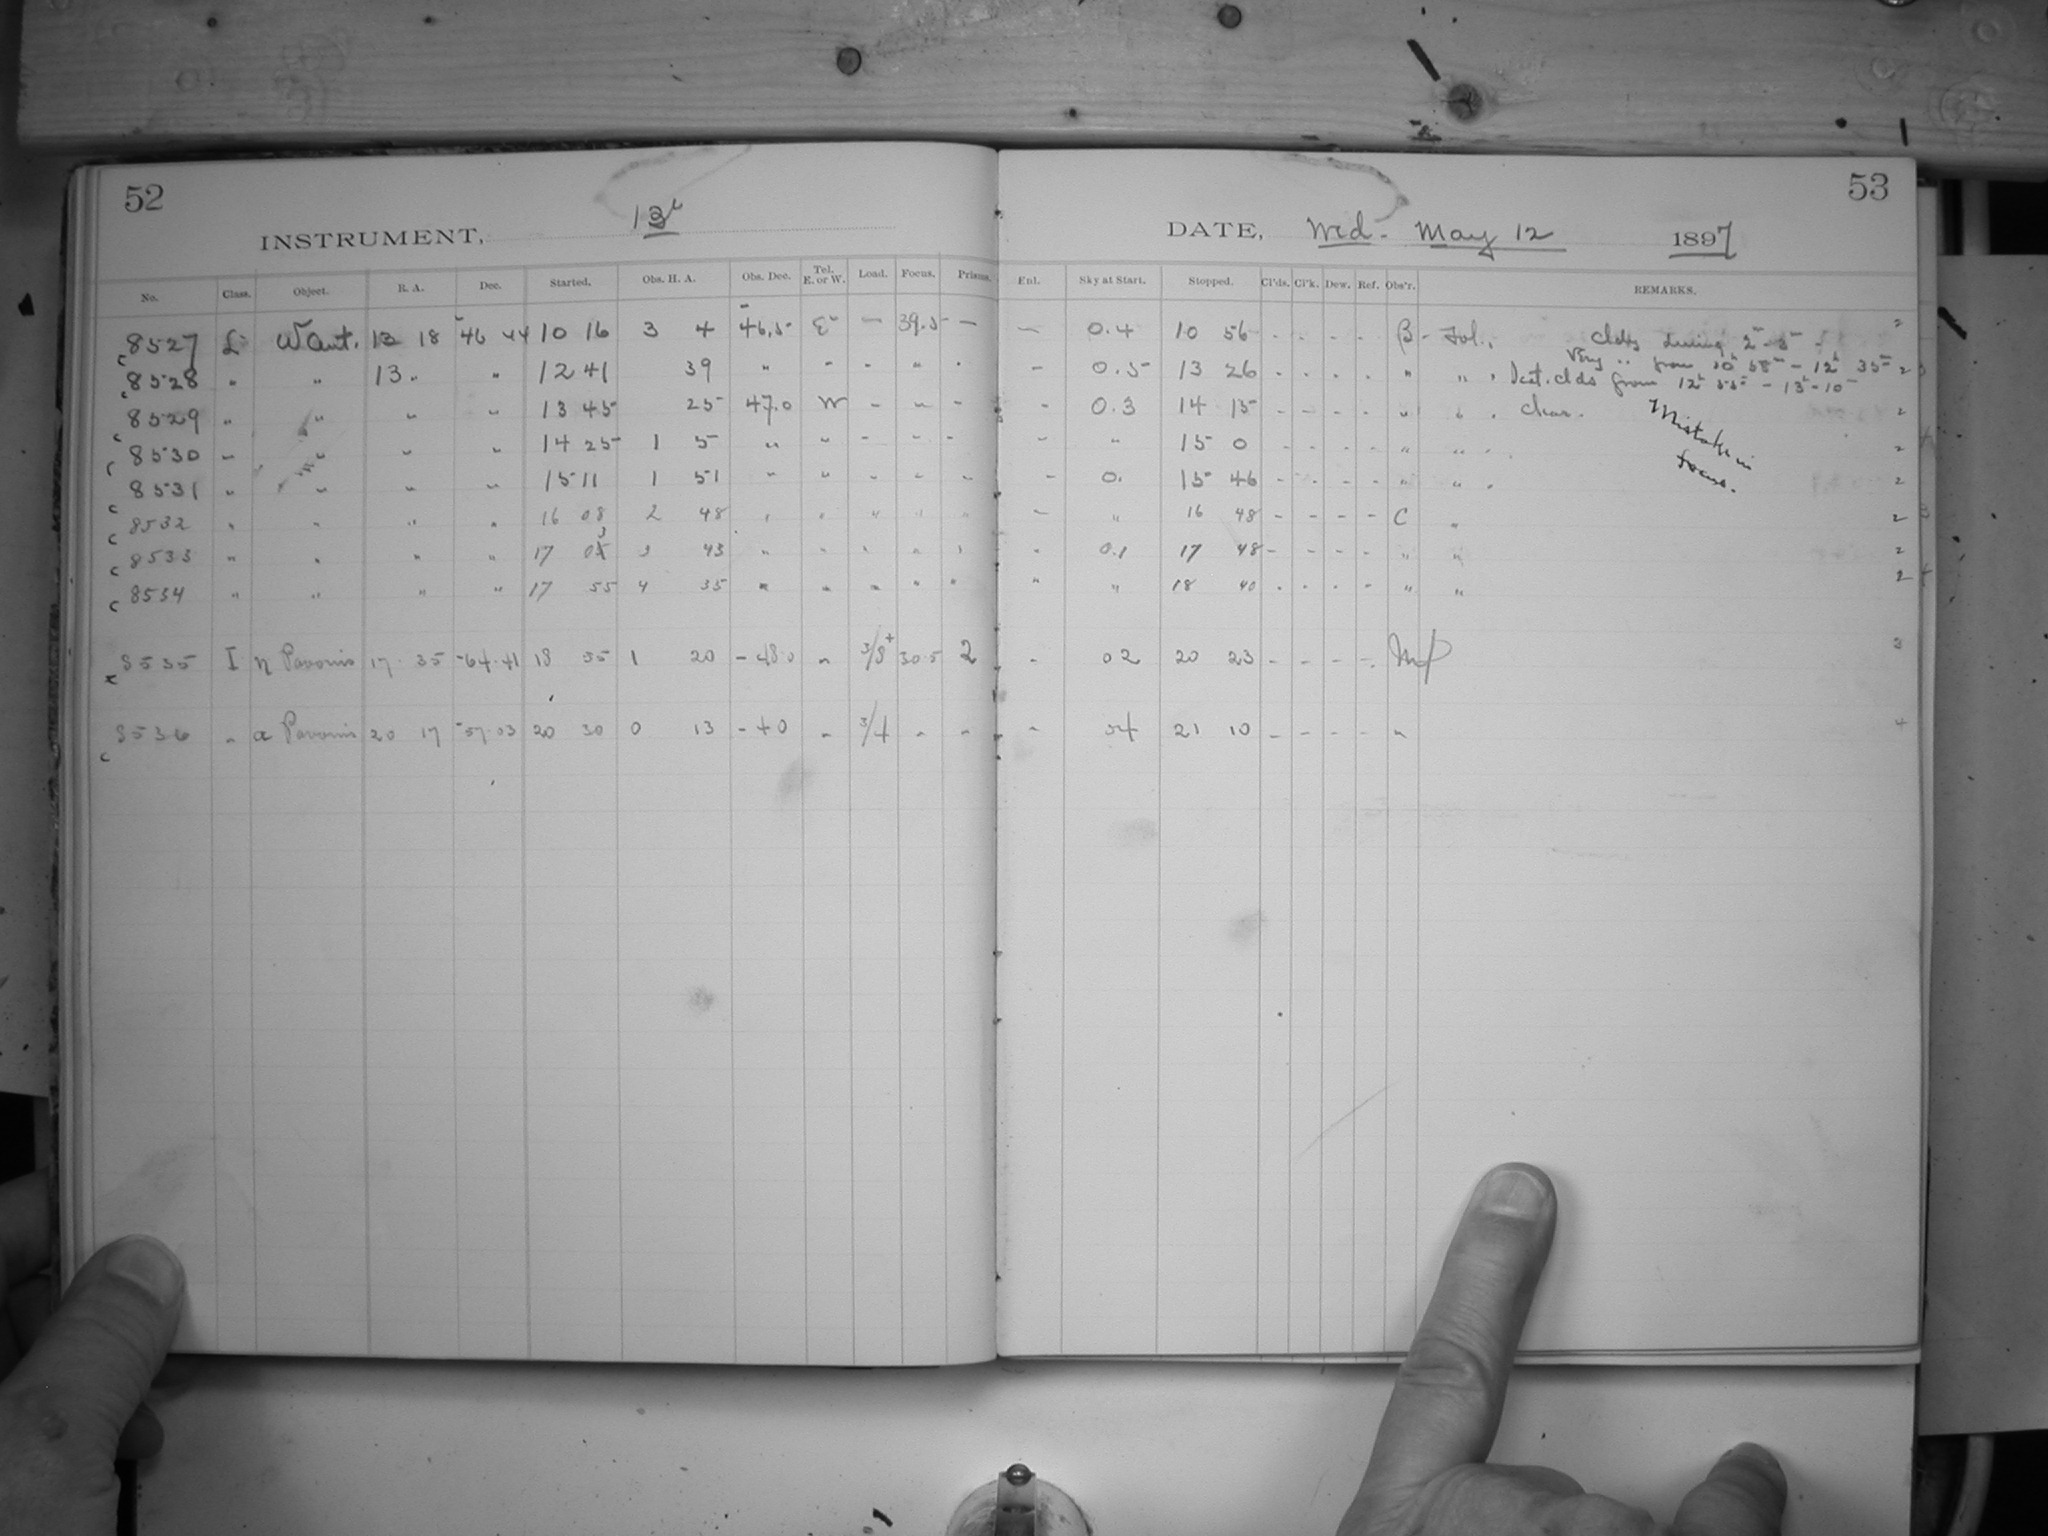 52
INSTRUMENT, 13"
No. Class. Object. R. A. Dec. Started. Obs. H. A. Obs. Dec. Tel. E. or W. Load. Focus. Prisms.
8527 L W Cent. 13 18 -46 44 10 16 3 4 -46.5 E - 39.5 -
8528 " " 13 " " 12 41 39 " - - " -
8529 " " " " 13 45 25 47.0 W - " -
8530 " " " " 14 25 1 5 " " - - -
8531 " " " " 15 11 1 51 " " - - -
8532 " " " " 16 08 2 48 " " " " "
8533 " " " " 17 03 3 43 " " " " "
8534 " " " " 17 55 4 35 " " " " "
8535 I η Pavonis 17 35 -64.41 18 55 1 20 -48.0 " 3/8+ 30.5 2
8536 " α Pavonis 20 17 -57.03 20 30 0 13 -40 " 3/4 " "
53
DATE, Wed. May 12 1897
Enl. Sky at Start. Stopped. Cl'ds. Cl'k. Dew. Ref. Obs'r. REMARKS.
- 0.4 10 56 - - - - B - Fol., Cldy during 2m-3m - 2
- 0.5 13 26 - - - - " " . Very " from 10h 58m - 12h 35m 2
Scat. clds from 12h 55m - 13h-10m
- 0.3 14 15 - - - - " " . Clear. 2
- " 15 0 - - - - " " " 2
- 0. 15 46 - - - - " " . 2
Mistake in
focus.
- " 16 48 - - - - C " 2
" 0.1 17 48 - - - - " " 2
" " 18 40 - - - - " " 2
- 02 20 23 - - - - 3
- 21 10 - - - - " 4